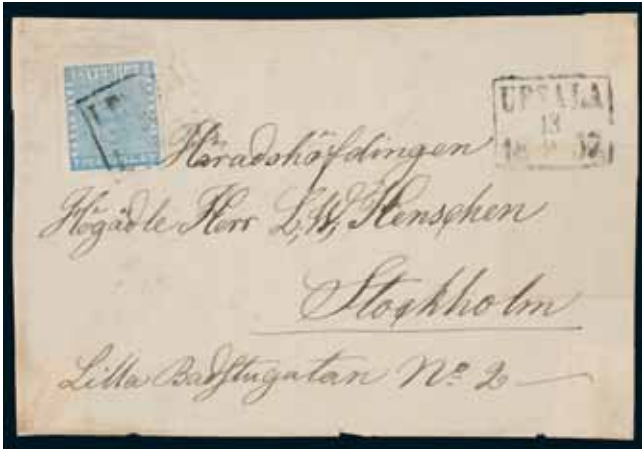 UPSALA
13
Häradshöfdingen
Högädle Herr L, W, Henschen
Stockholm
Lilla Badstugatan No 2